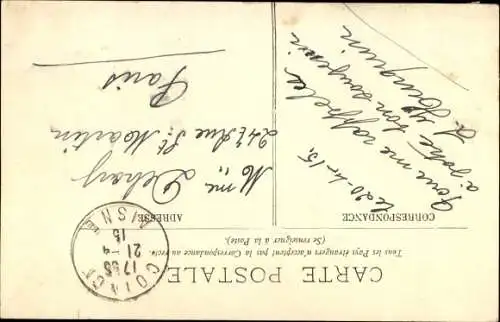 CARTE POSTALE
Tous les Pays étrangers n'acceptent pas la Correspondance au recto.
(Se renseigner à la Poste).
CORRESPONDANCE
ADRESSE
Le 20-4-15,
Pour me rappeler
à votre bon souvenir
COINCY
17 55
21 -4
15
AISNE
Mme Dehay
247 Rue St Martin
Paris